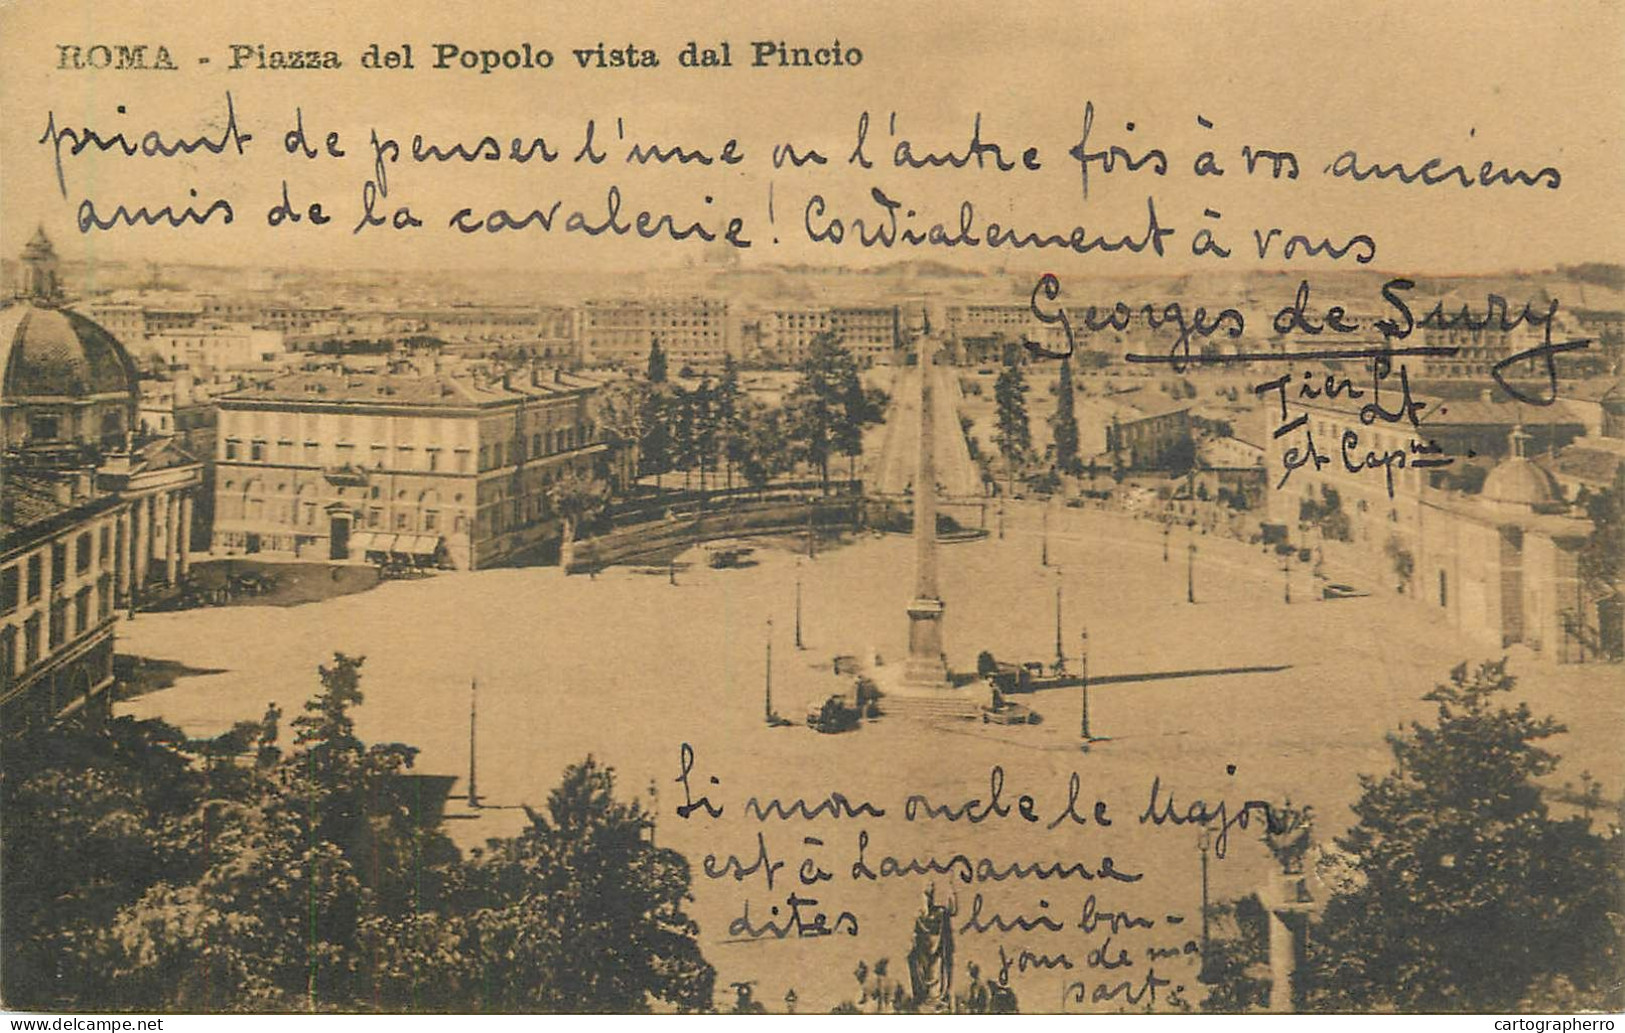 ROMA - Piazza del Popolo vista dal Pincio
priant de penser l'une ou l'autre fois à vos anciens
amis de la cavalerie! Cordialement à vous
Georges de Sury
Lt.
et Capne.
Si mon oncle le Major
est à Lausanne
dites lui bon-
jour de ma
part.
delcampe.net
cartographerro